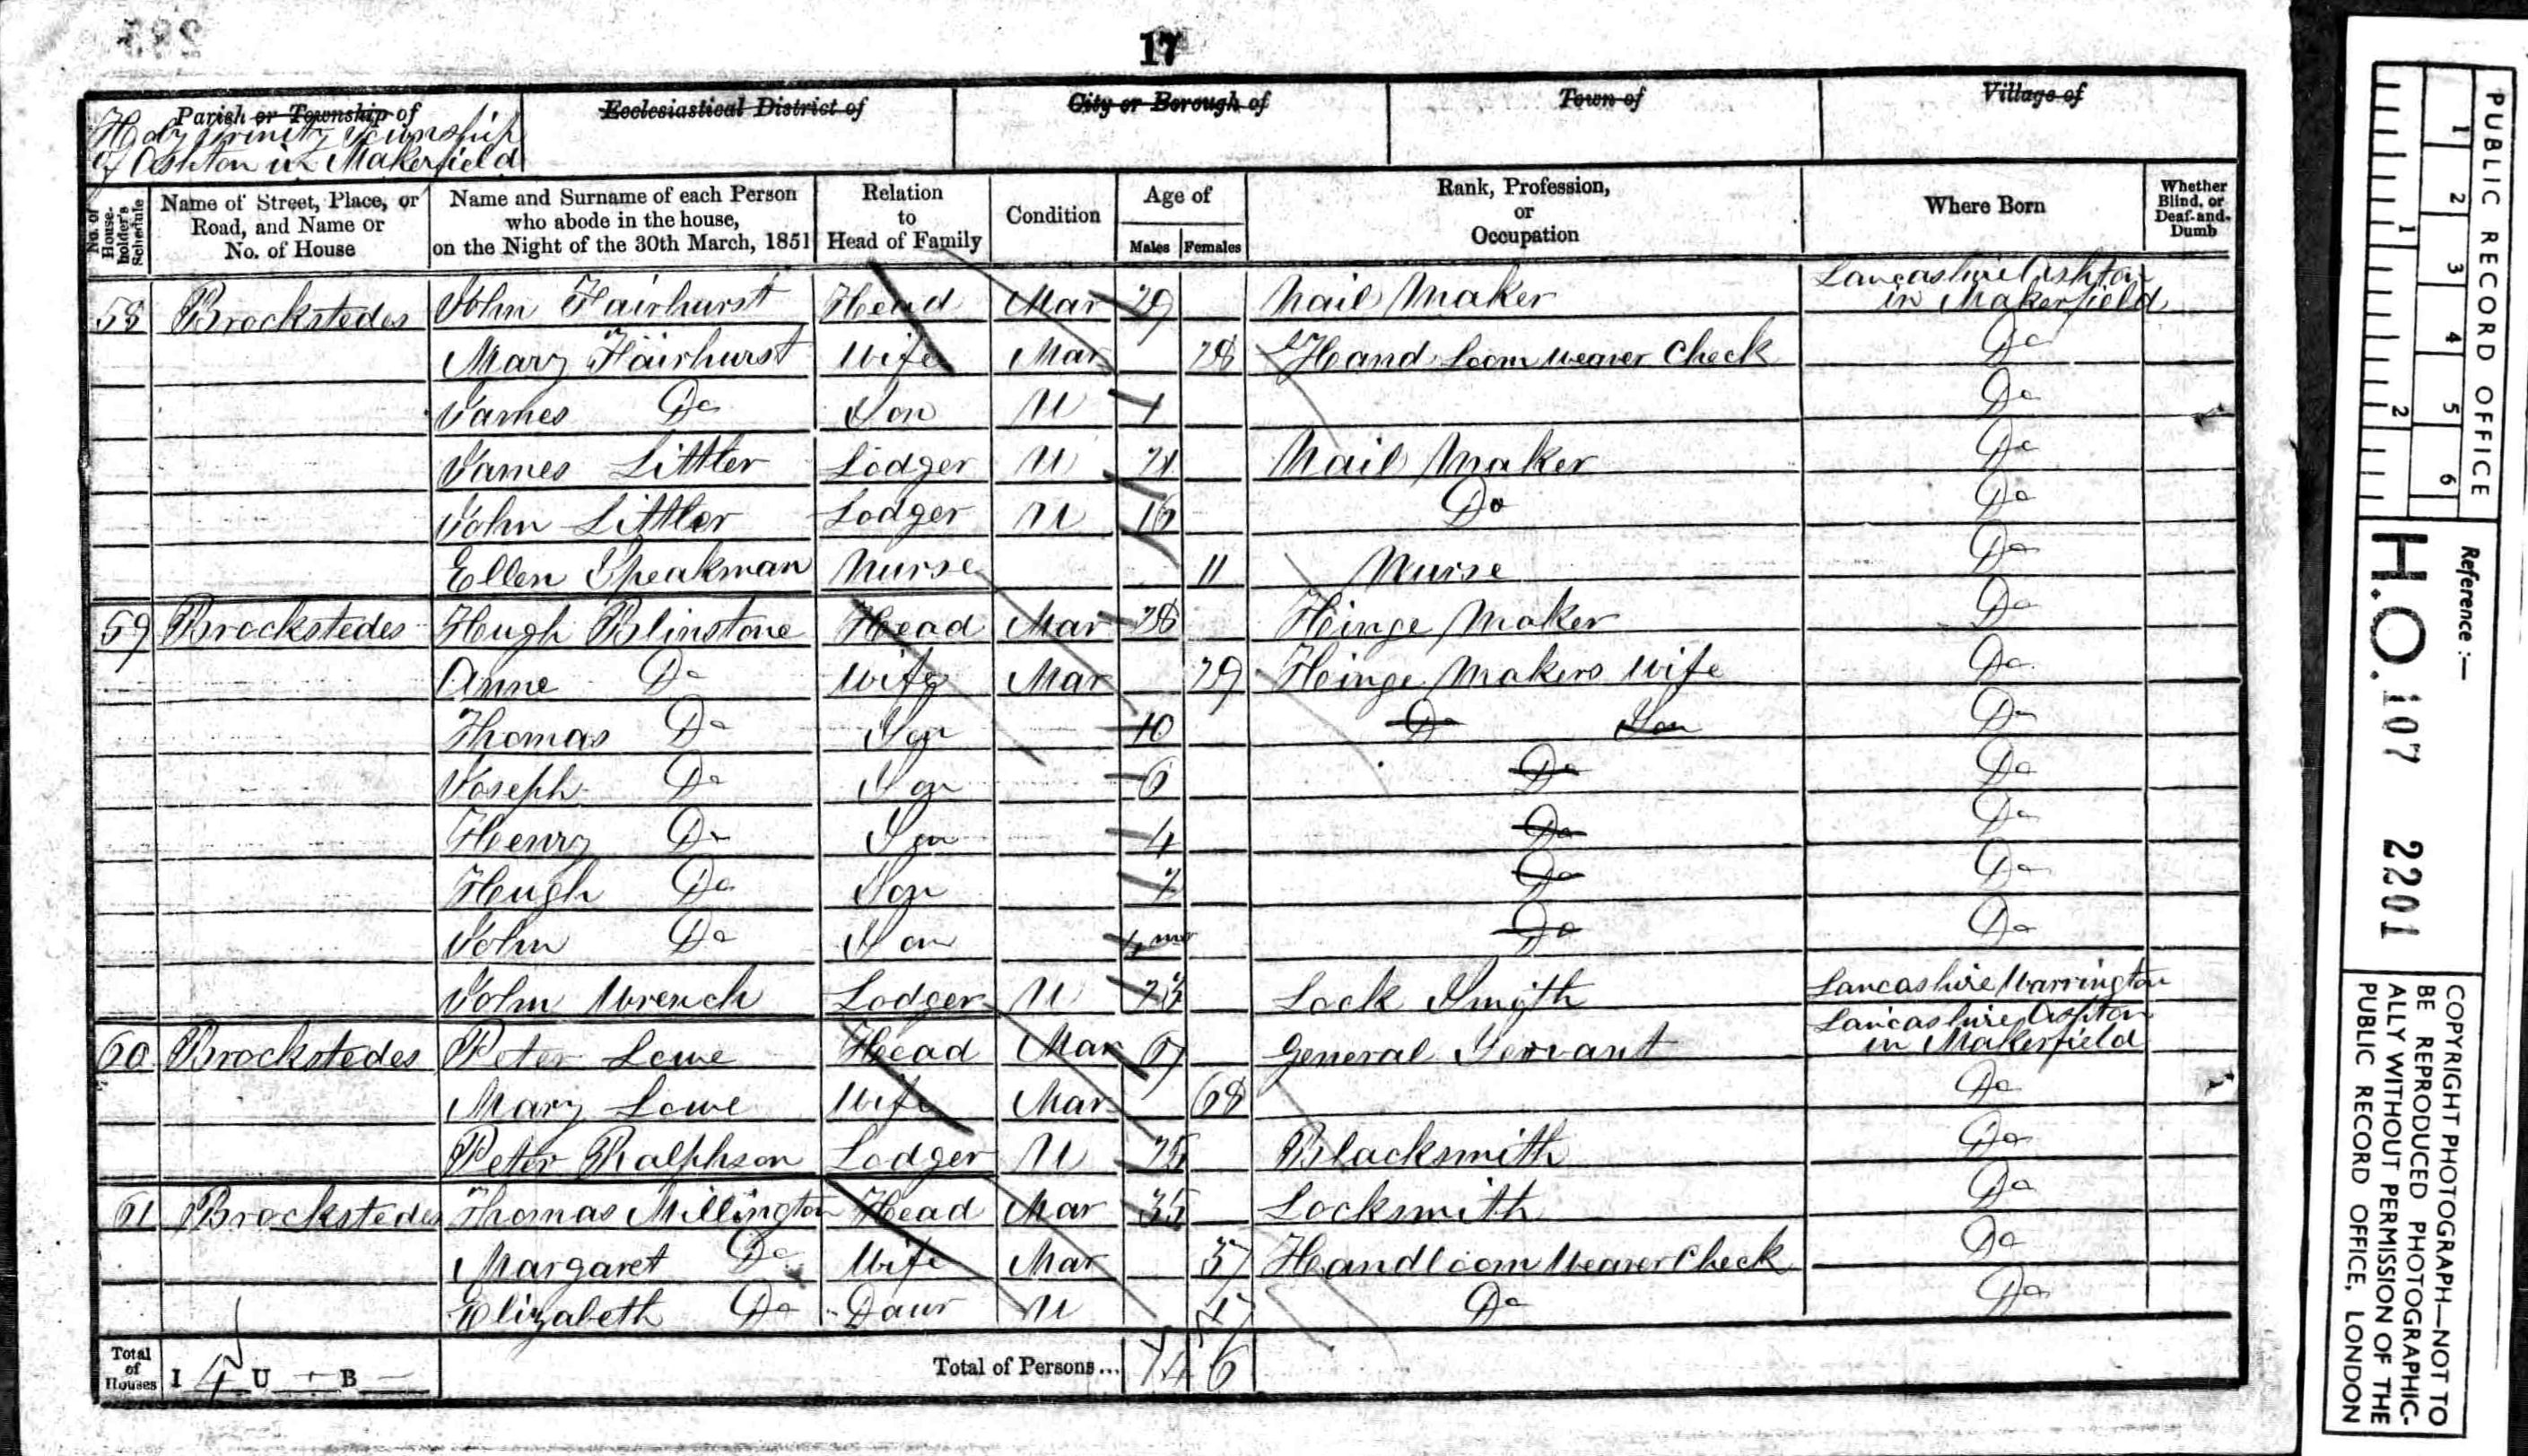 17
Parish or Township of
Holy Trinity Township
of Ashton in Makerfield
Ecclesiastical District of
City or Borough of
Town of
Village of
No. of House-holder's Schedule
Name of Street, Place, or Road, and Name or No. of House
Name and Surname of each Person who abode in the house, on the Night of the 30th March, 1851
Relation to Head of Family
Condition
Age of
Males Females
Rank, Profession, or Occupation
Where Born
Whether Blind, or Deaf-and-Dumb
58 Brockstedes John Fairhurst Head Mar 29 Nail Maker Lancashire Ashton in Makerfield
Mary Fairhurst Wife Mar 28 Hand Loom Weaver Check Do
James Do Son U Do
James Littler Lodger U Nail Maker Do
John Littler Lodger U 16 Do Do
Ellen Speakman Nurse 11 Nurse Do
59 Brockstedes Hugh Blinstone Head Mar 28 Hinge Maker Do
Anne Do Wife Mar 29 Hinge Makers Wife Do
Thomas Do Son 10 Do Son Do
Joseph Do Son 6 Do Do
Henry Do Son 4 Do Do
Hugh Do Son 2 Do Do
John Do Son 4 mo Do Do
John Wrench Lodger U 23 Lock Smith Lancashire Warrington
60 Brockstedes Peter Lowe Head Mar 67 General Servant Lancashire Ashton in Makerfield
Mary Lowe Wife Mar 68 Do
Peter Ralphson Lodger U 25 Blacksmith Do
61 Brockstedes Thomas Millington Head Mar 35 Locksmith Do
Margaret Do Wife Mar 37 Handloom Weaver Check Do
Elizabeth Do Daur U 17 Do Do
Total of Houses I 4 U B
Total of Persons... 14 6
PUBLIC RECORD OFFICE
1 2 3 4 5 6
1 2
Reference :—
H.O. 107 2201
COPYRIGHT PHOTOGRAPH—NOT TO
BE REPRODUCED PHOTOGRAPHIC-
ALLY WITHOUT PERMISSION OF THE
PUBLIC RECORD OFFICE, LONDON